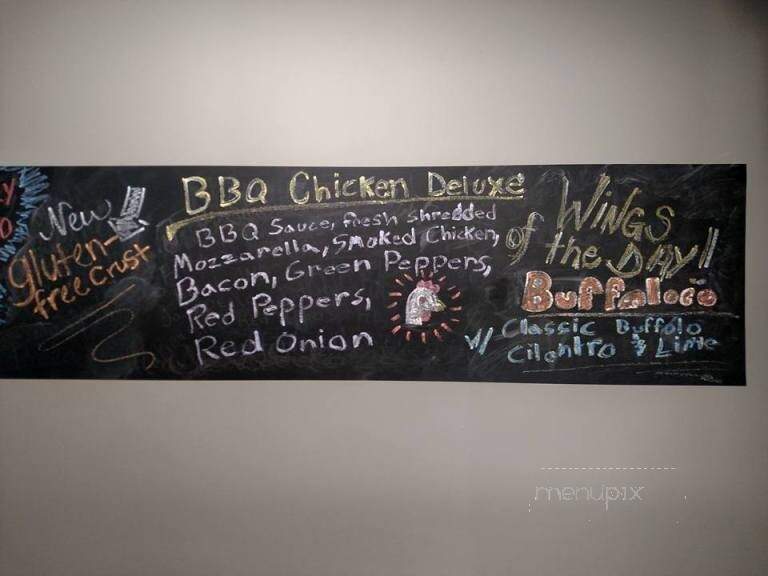 New
gluten-
free Crust
BBQ Chicken Deluxe
BBQ Sauce, fresh shredded
Mozzarella, Smoked Chicken,
Bacon, Green Peppers,
Red Peppers,
Red Onion
Wings
of the DAY!!
Buffaloco
w/ Classic Buffalo
Cilantro & Lime
menupix